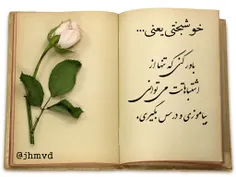 خوشبختی یعنی...
باور کنی که تنها از
اشتباهاتت می توانی
بیاموزی و درس بگیری.
@jhmvd